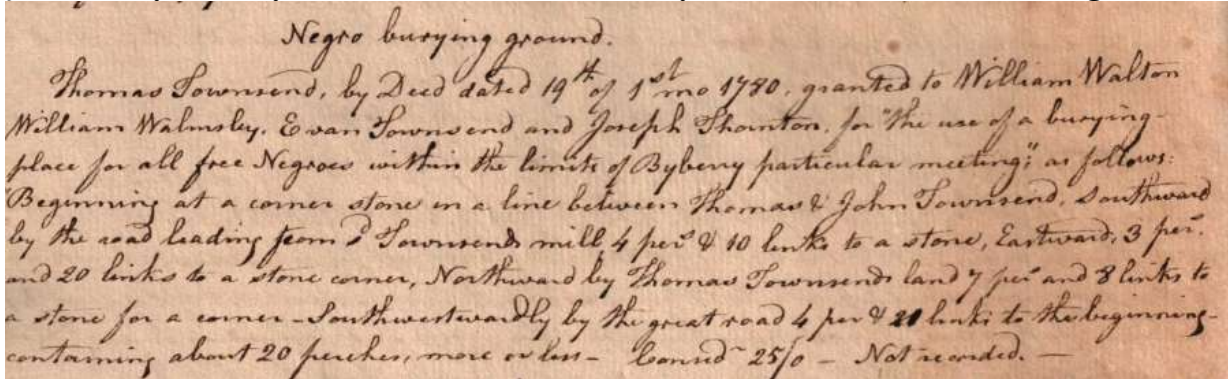 Negro burying ground.
Thomas Townsend, by Deed dated 19th of 1st mo 1780, granted to William Walton
William Walmsley, Evan Townsend and Joseph Thornton, for "the use of a burying-
place for all free Negroes within the limits of Byberry particular meeting"; as follows:
"Beginning at a corner stone in a line between Thomas & John Townsend, Southward
by the road leading from sd Townsends mill 4 pers & 10 links to a stone, Eastward, 3 per.
and 20 links to a stone corner, Northward by Thomas Townsends land 7 pers and 8 links to
a stone for a corner - Southwestwardly by the great road 4 per & 21 links to the beginning-
containing about 20 perches, more or less - Consid 25/0 - Not recorded. —